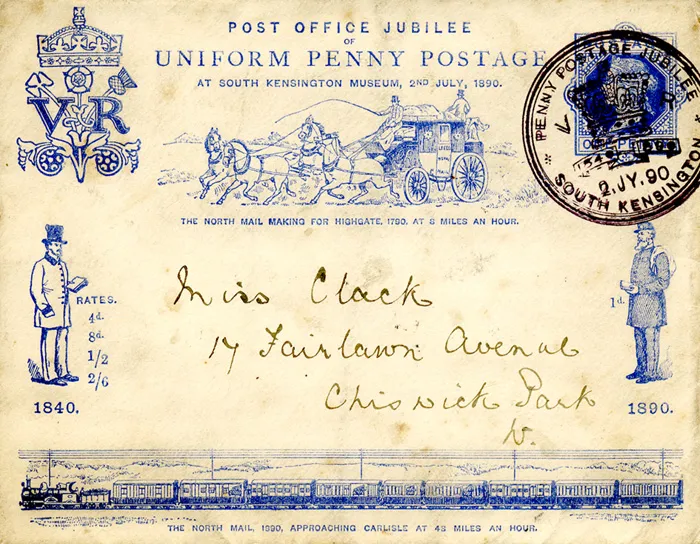 POST OFFICE JUBILEE
OF
UNIFORM PENNY POSTAGE
AT SOUTH KENSINGTON MUSEUM, 2ND JULY, 1890.
VR
PENNY POSTAGE JUBILEE
2.JY.90
SOUTH KENSINGTON
ONE PENNY
THE NORTH MAIL MAKING FOR HIGHGATE, 1790, AT 8 MILES AN HOUR.
RATES.
4d.
8d.
1/2
2/6
1840.
1d.
1890.
Miss Clack
17 Fairlawn Avenue
Chiswick Park
W.
THE NORTH MAIL, 1890, APPROACHING CARLISLE AT 48 MILES AN HOUR.